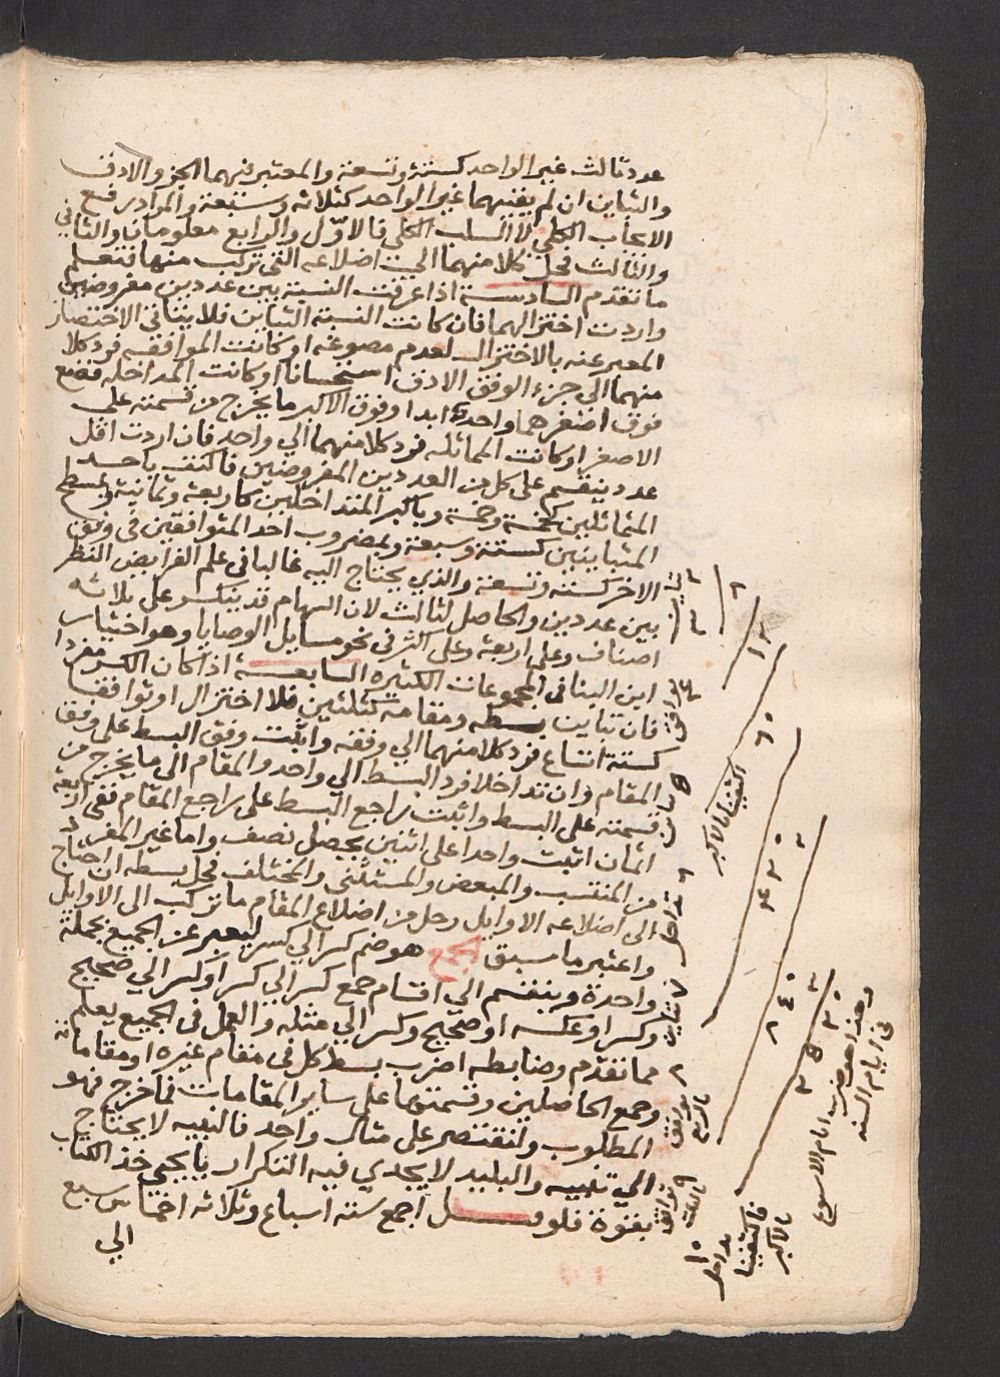 عدد ثالث غير الواحد كستة وتسعة والمعتبر فيهما الجزو الادق
والتباين ان لم يفنيهما غير الواحد كثلاثة وسبعة والمراد رفع
الايجاب الكلي لا السلب الكلي فالاول والرابع معلومان والثاني
والثالث فحل كلا منهما الي اضلاعه التي تركب منها فتعلم
ما تقدم السادسة اذا عرفت النسبة بين عددين مفروضين
واردت اختزالهما فان كانت النسبة التباين فلا يتاتي الاختصار
المعبر عنه بالاختزال لعدم مصوغه او كانت الموافقه فرد كلا
منهما الي جزء الوفق الادق استحسانا او كانت المداخله فضع
فوق اصغرهما واحدا ابدا وفوق الاكبر ما يخرج من قسمته علي
الاصغر او كانت المماثله فرد كلا منهما الي واحد فان اردت اقل
عدد ينقسم علي كل من العددين المفروضين فاكتف باحد
المتماثلين كخمسة وخمسة وباكبر المتداخلين كاربعة وثمانية وبمسطح
المتباينين كستة وسبعة وبمضروب احد المتوافقين في وفق
الاخر كستة وتسعة والذي يحتاج اليه غالبا في علم الفرايض النظر
بين عددين والحاصل لثالث لان السهام قد ينكسر علي ثلاثة
اصناف وعلي اربعة وعلي اكثر في نحو مسايل الوصايا وهو اختيار
ابن البنا في المجموعات الكثيره السابعة اذا كان الكسر مفردا
فان تباين بسطه ومقامه كثلثين فلا اختزال او توافقا
كستة اتساع فرد كلا منهما الي وفقه واثبت وفق البسط علي وفق
المقام وان تداخلا فرد البسط الي واحد والمقام الي ما يخرج من
قسمته علي البسط واثبت راجع البسط علي راجع المقام ففي اربعة
اثمان اثبت واحدا علي اثنين يحصل نصف واما غير المفرد
من المنتسب والمبعض والمستثني والمختلف فحل بسطه ان احتاج
الي اضلاعه الاوايل وحل من اضلاع المقام ما تركب الي الاوايل
واعتبر ما سبق الجمع هو ضم كسر الي كسر ليعبر عن الجميع بجملة
واحدة وينقسم الي اقسام جمع كسر الي كسر او كسر الي صحيح
وكسر او عكسه او صحيح وكسر الي مثله والعمل في الجميع يعلم
مما تقدم وضابطه اضرب بسط كل في مقام غيره او مقاماته
وجمع الحاصلين وقسمتهما علي ساير المقامات فما خرج فهو
المطلوب ولنقتصر علي مثال واحد فالنبيه لا يحتاج
الي تنبيه والبليد لا يجدي فيه التكرار يا يحيي خذ الكتاب
بقوة فلو قيل اجمع ستة اسباع وثلاثة اخماس سبع
الي
١٢
٦٠
اكتفينا بالاكبر
٢٥٢٠
وهذا هو ضرب ايام الاسبوع
في ايام السنه
فاكتفينا
بالاكبر